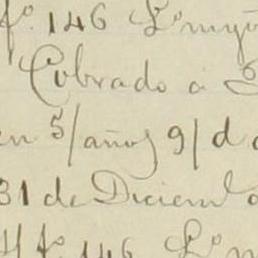 fº. 146 Lº my
Cobrado a
en 5/años 9/d
31 de Diciem
fº. 146 Lº m